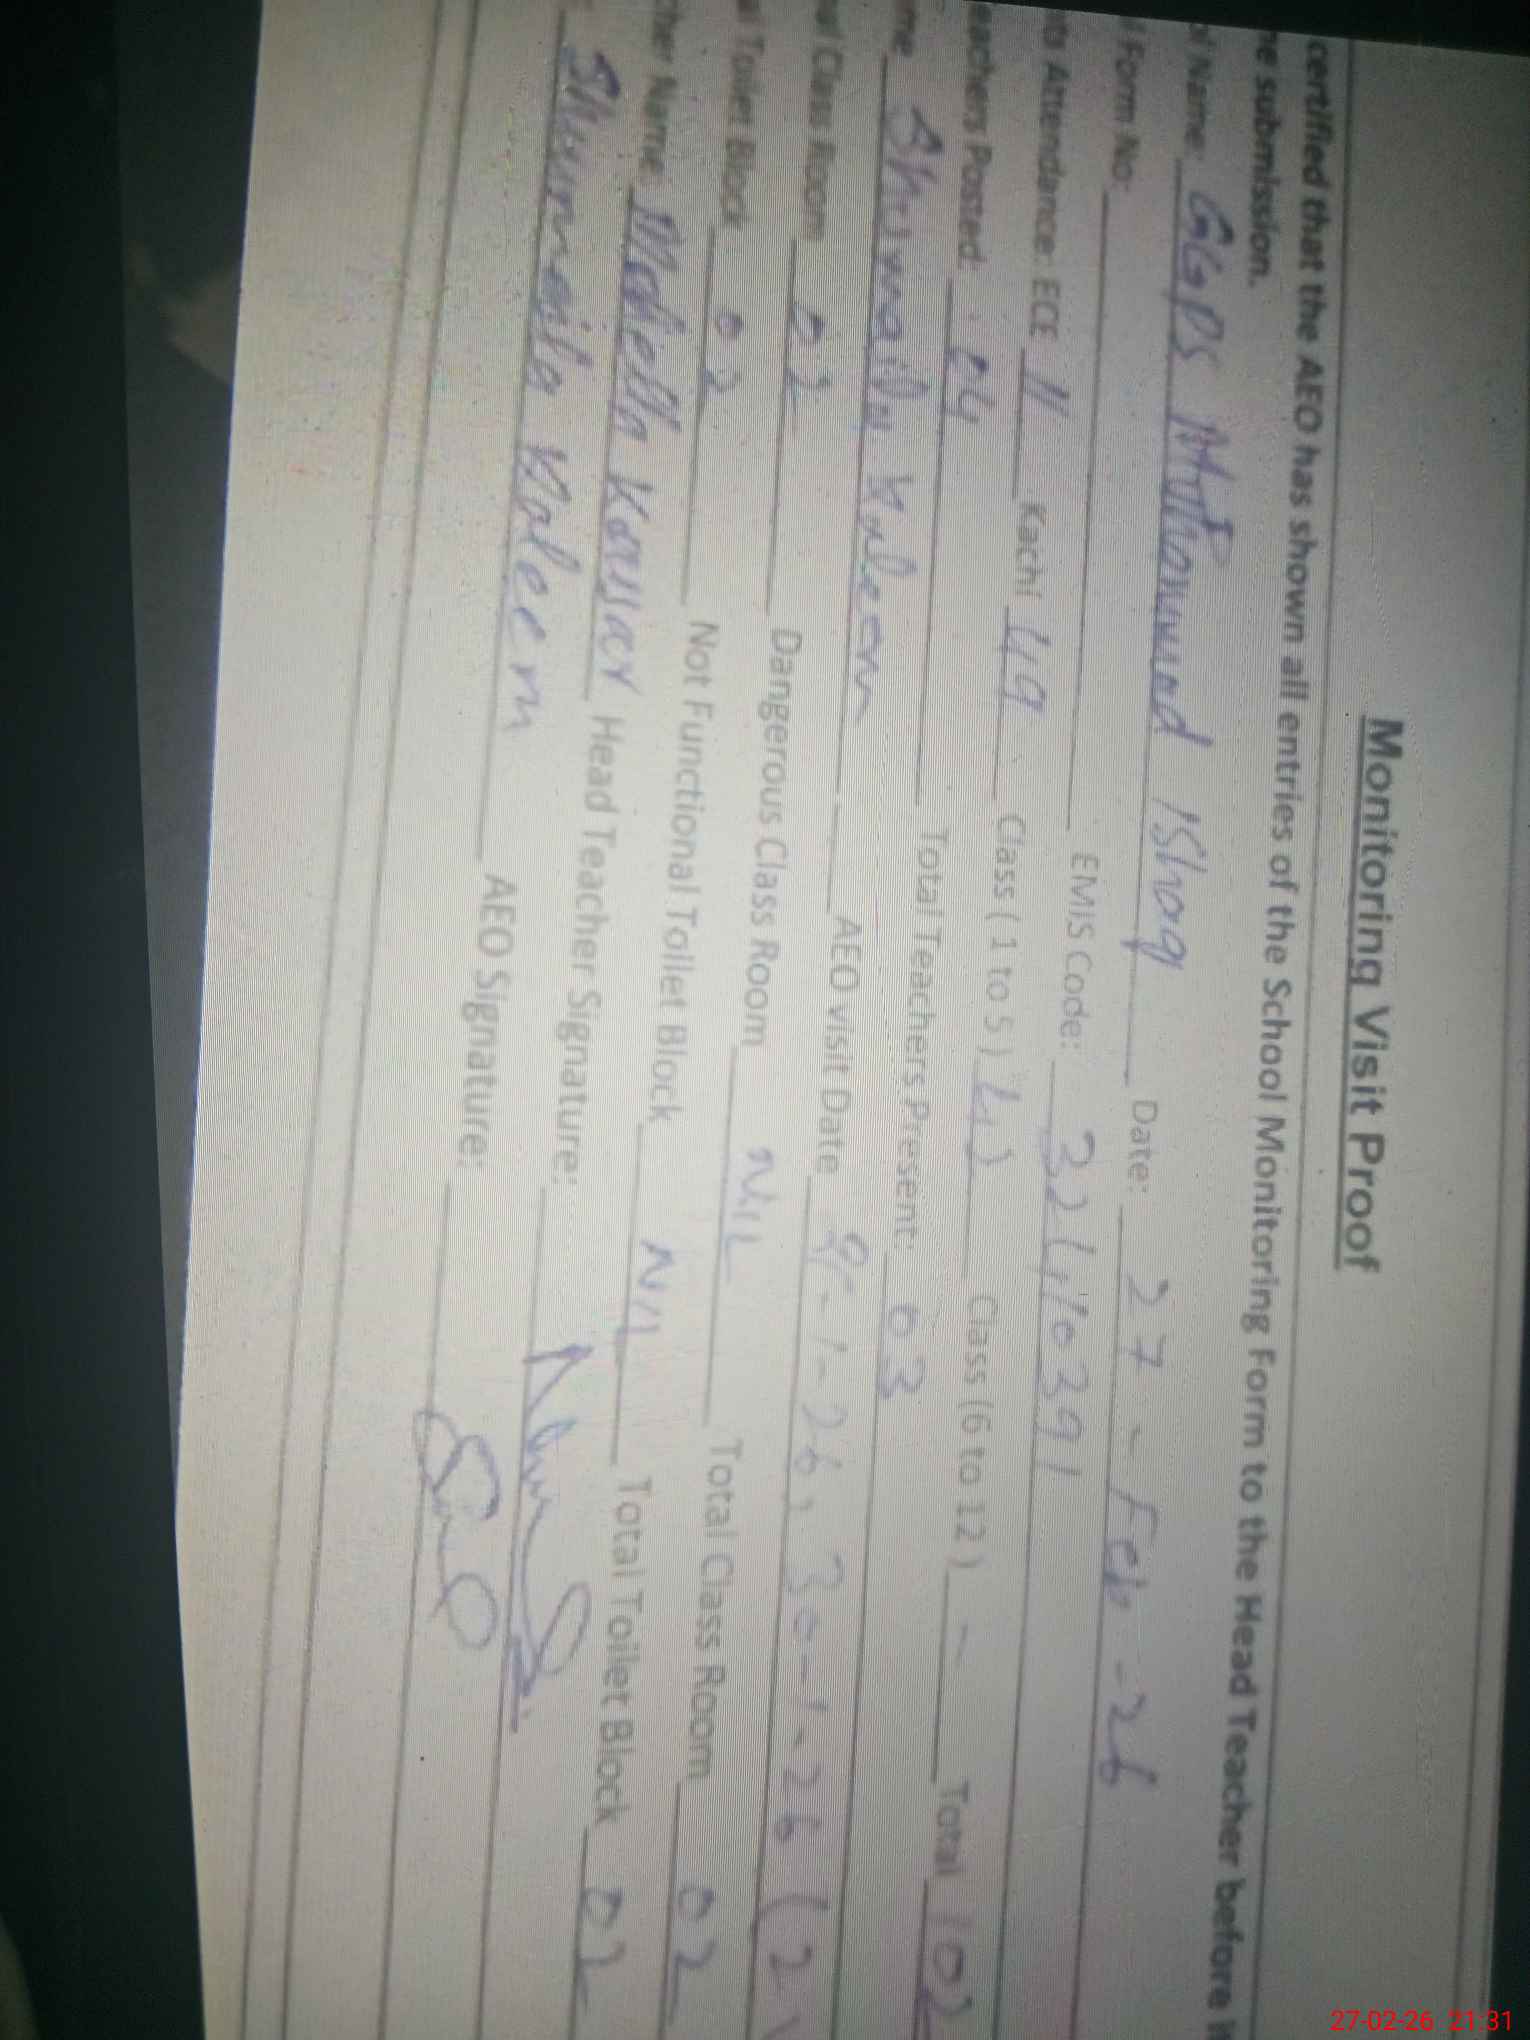 Monitoring Visit Proof
certified that the AEO has shown all entries of the School Monitoring Form to the Head Teacher before
re submission.
Name: GGPS Muhammad IShaq Date: 27-Feb-26
Form No: EMIS Code: 32110391
ts Attendance: ECE 11 Kachi 49 Class ( 1 to 5 ) 42 Class (6 to 12 ) - Total 102
eachers Posted: 04 Total Teachers Present: 03
me Shumaila Kaleem AEO visit Date 30-1-26 (2
Class Room 02 Dangerous Class Room NIL Total Class Room 02
Toilet Block 02 Not Functional Toilet Block Nil Total Toilet Block 02
cher Name: Kausar Head Teacher Signature:
Shumaila Kaleem AEO Signature:
27-02-26 21:31